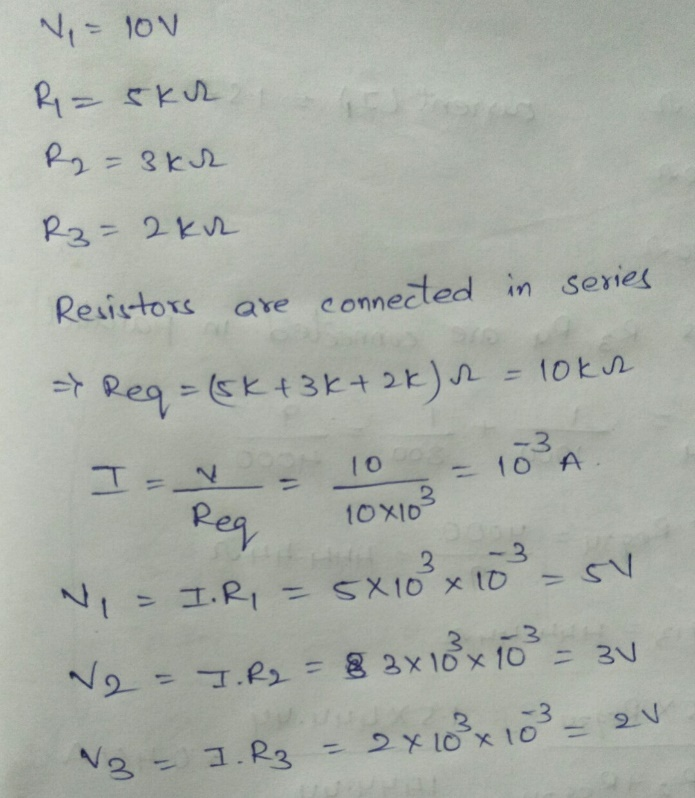 V₁ = 10V
R₁ = 5KΩ
R₂ = 3KΩ
R₃ = 2KΩ
Resistors are connected in series
⇒ Req = (5K + 3K + 2K) Ω = 10KΩ
I = V/Req = 10/10×10³ = 10⁻³ A.
V₁ = I.R₁ = 5×10³ × 10⁻³ = 5V
V₂ = I.R₂ = 3×10³×10⁻³ = 3V
V₃ = I.R₃ = 2×10³×10⁻³ = 2V